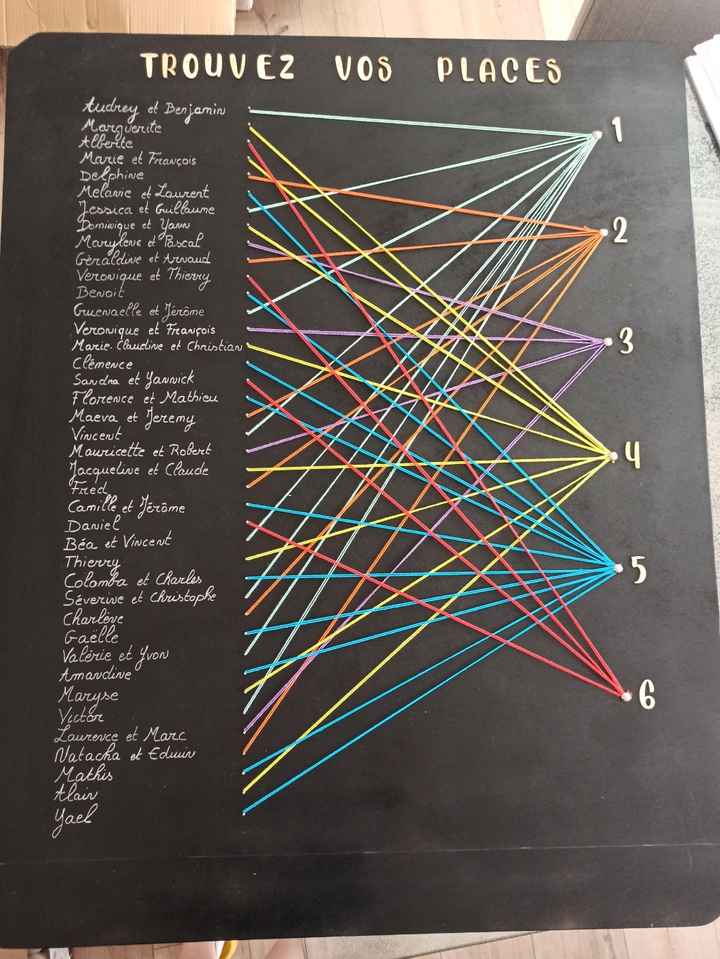 TROUVEZ VOS PLACES
Audrey et Benjamin
Marguerite
Alberte
Marie et François
Delphine
Mélanie et Laurent
Jessica et Guillaume
Dominique et Yann
Marylène et Pascal
Géraldine et Arnaud
Veronique et Thierry
Benoit
Guenaelle et Jérôme
Veronique et François
Marie. Claudine et Christian
Clémence
Sandra et Yannick
Florence et Mathieu
Maeva et Jeremy
Vincent
Mauricette et Robert
Jacqueline et Claude
Fred
Camille et Jérôme
Daniel
Béa et Vincent
Thierry
Colomba et Charles
Séverine et Christophe
Charlène
Gaëlle
Valérie et Yvon
Amandine
Maryse
Victor
Laurence et Marc
Natacha et Edwin
Mathis
Alain
Yael
1
2
3
4
5
6